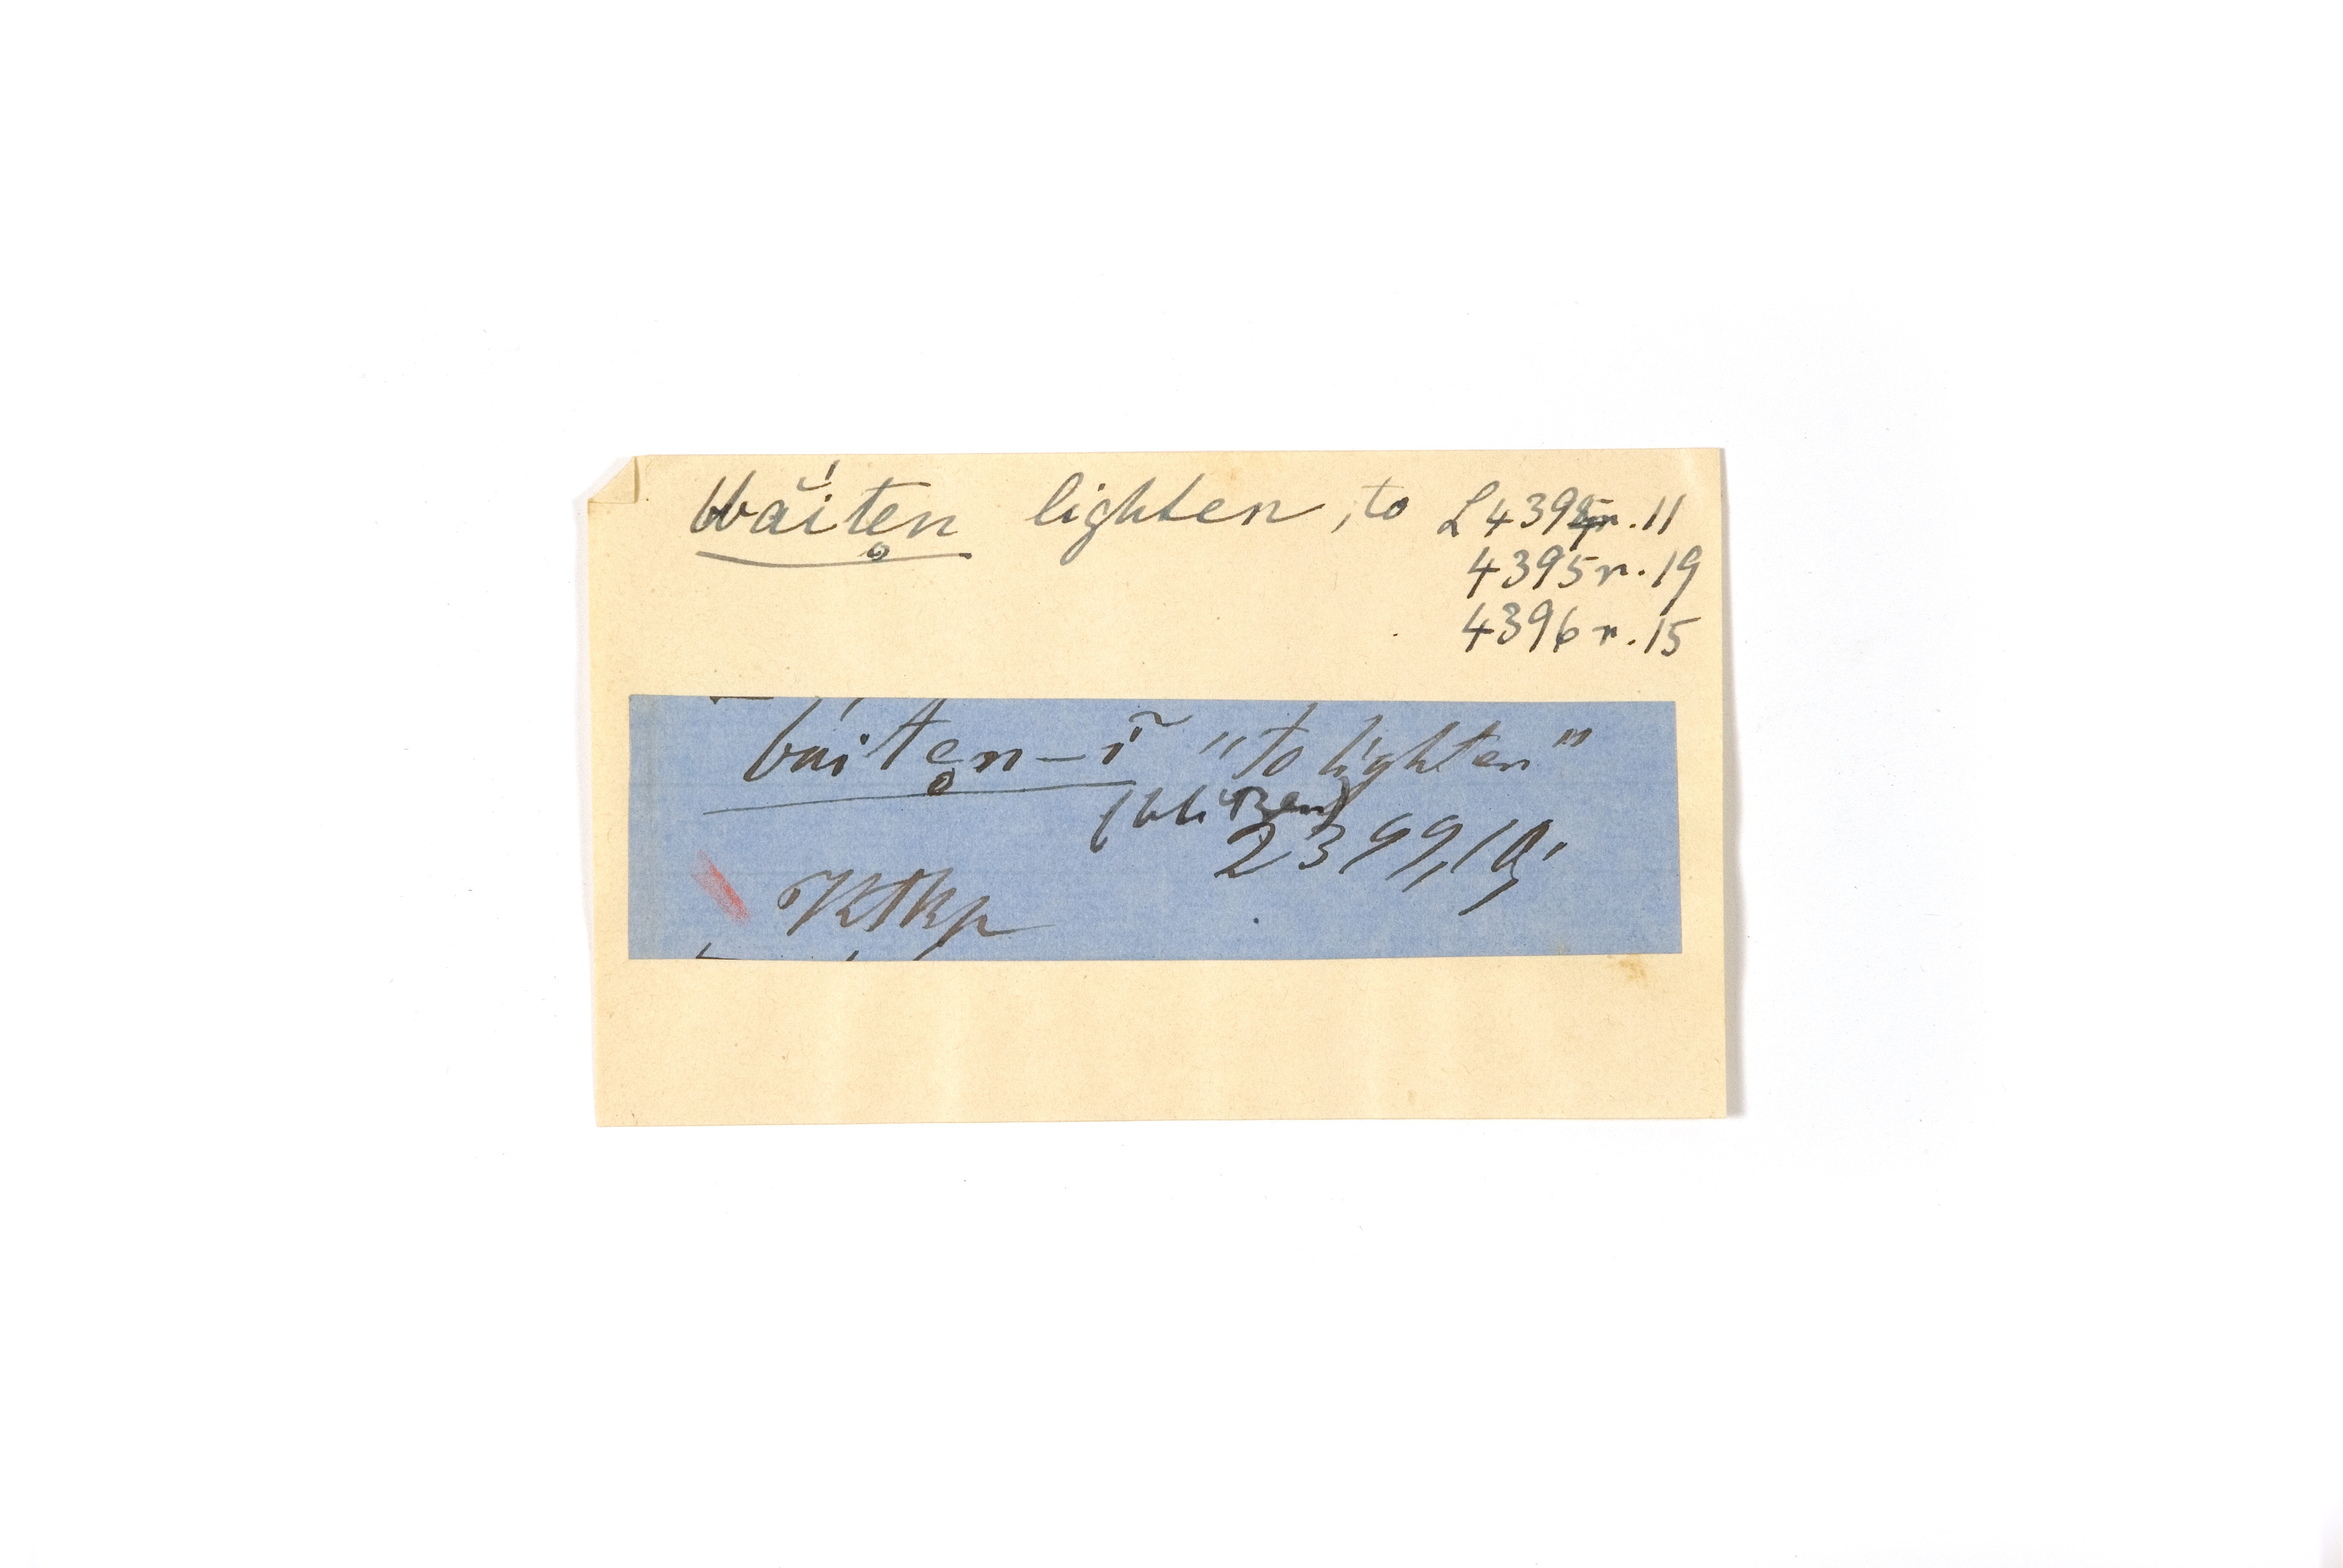 bā́itẹn lighten, to L 4394r.11
4395r.19
4396r.15
baitẹn-ĩ "to lighten"
(blitzen)
2399,10,
Ktkp